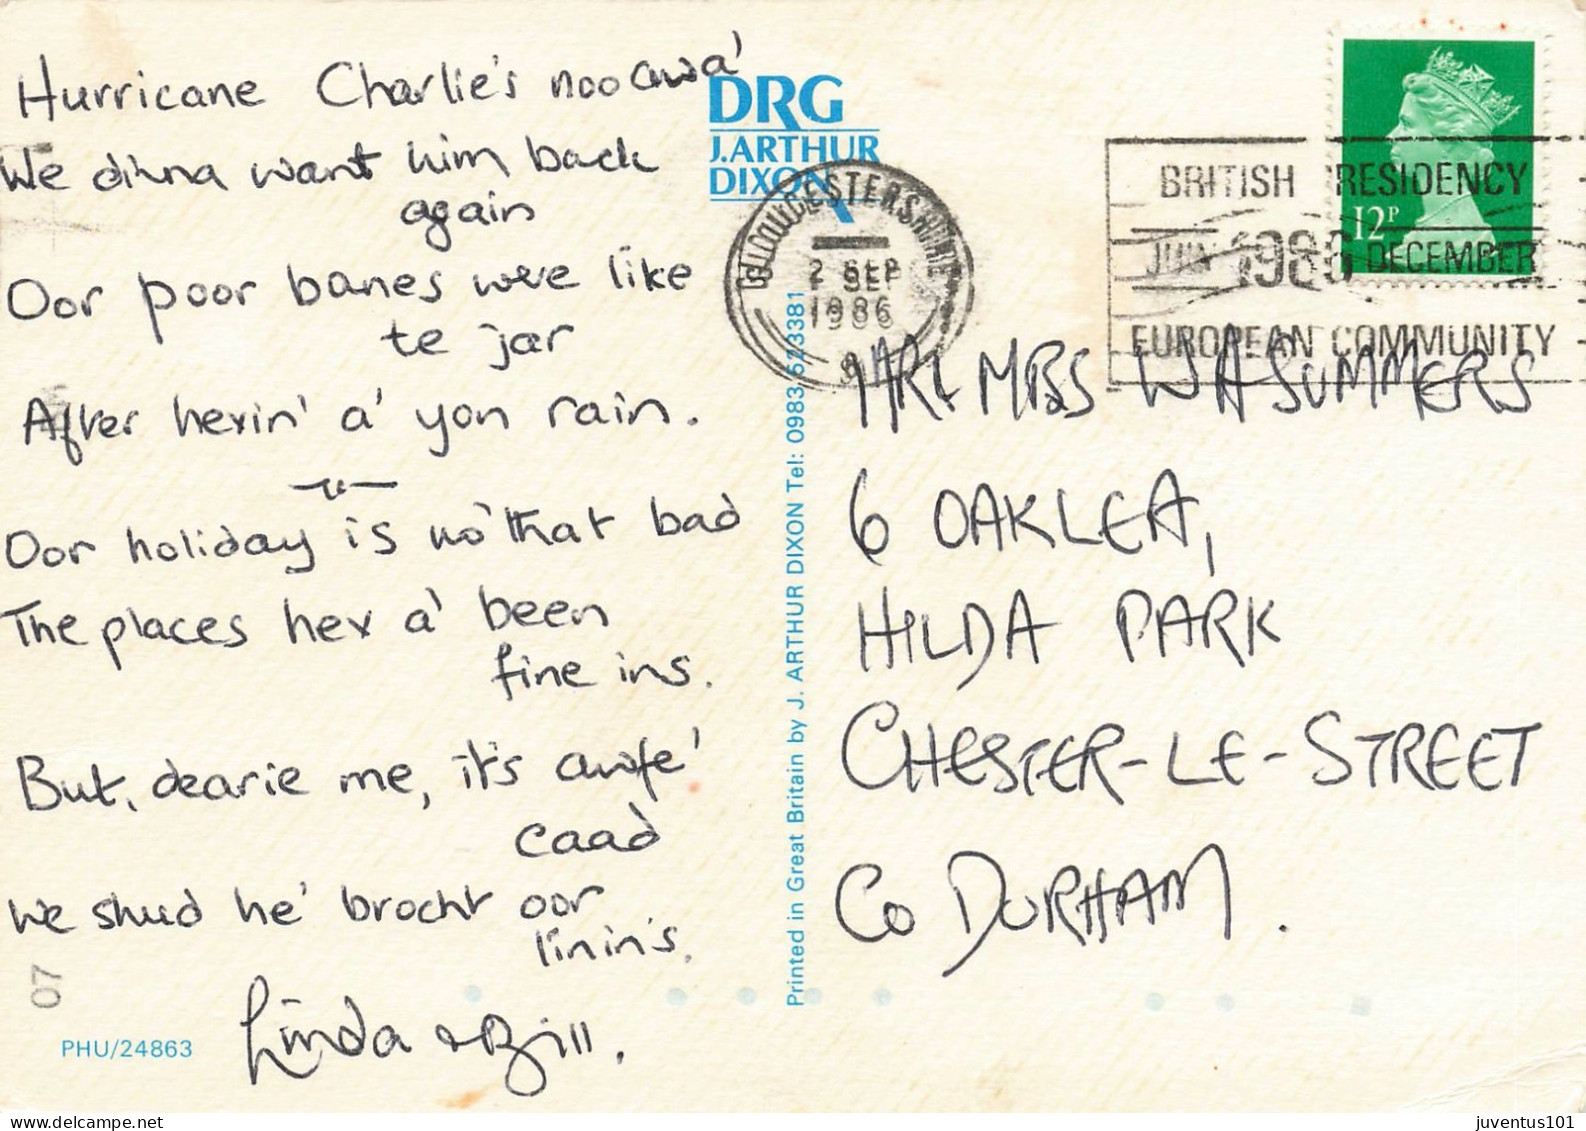 Hurricane Charlie's noo awa'
We dinna want him back
again
Oor poor banes were like
te jar
After hevin' a' yon rain.
Oor holiday is no' that bad
The places hev a' been
fine ins.
But, dearie me, it's awfe'
caad
We shud he' brocht oor
linin's.
Linda & Bill.
07
PHU/24863
DRG
J.ARTHUR
DIXON
Printed in Great Britain by J. ARTHUR DIXON Tel: 0983 523381
GLOUCESTERSHIRE
2 SEP
1986
BRITISH PRESIDENCY
JULY 1986 DECEMBER
EUROPEAN COMMUNITY
12P
MR & MRS W A SUMMERS
6 OAKLEA,
HILDA PARK
CHESTER-LE-STREET
CO DURHAM.
juventus101